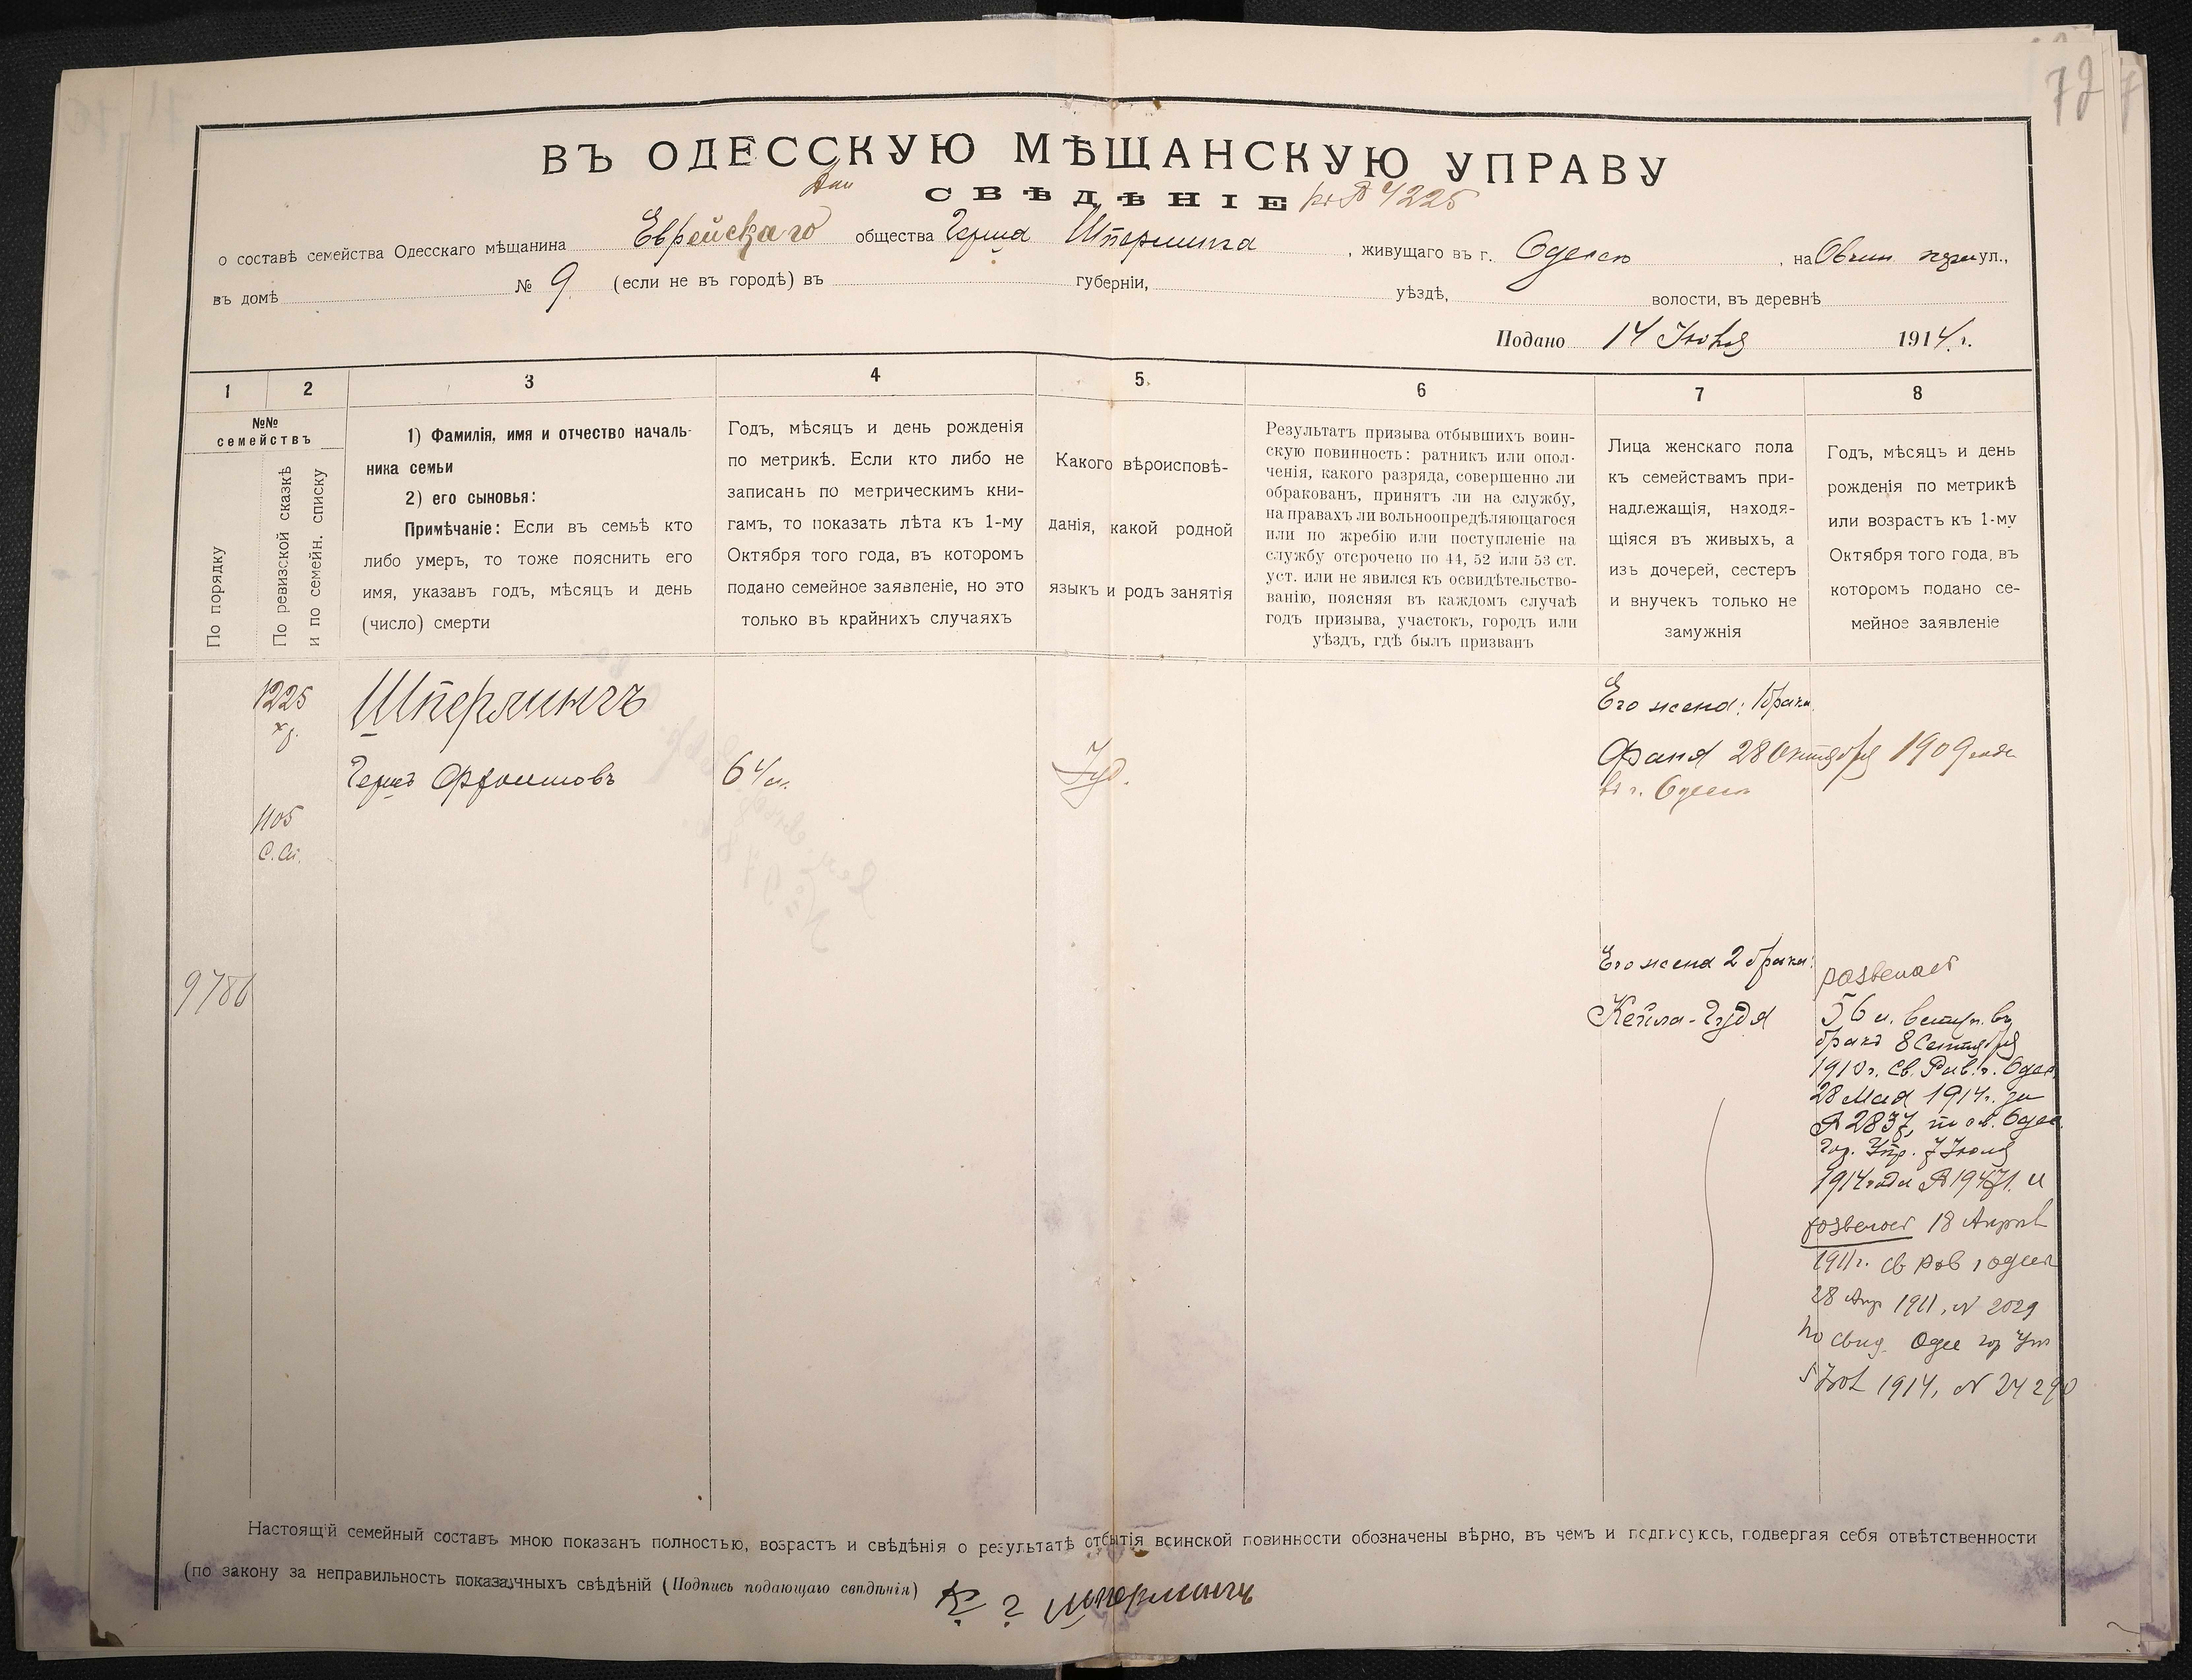 72
ВЪ ОДЕССКУЮ МѢЩАНСКУЮ УПРАВУ
СВѢДѢНІЕ
о составѣ семейства Одесскаго мѣщанина Еврейскаго общества Герша Штерлинга, живущаго въ г. Одессѣ, на ул.,
въ домѣ № 9 (если не въ городѣ) въ губерніи, уѣздѣ, волости, въ деревнѣ
Подано 14 1914 г.
1
2
3
4
5.
6
7
8
№№
семействъ
По порядку
По ревизской сказкѣ
и по семейн. списку
1) Фамилія, имя и отчество началь-
ника семьи
2) его сыновья:
Примѣчаніе: Если въ семьѣ кто
либо умеръ, то тоже пояснить его
имя, указавъ годъ, мѣсяцъ и день
(число) смерти
Годъ, мѣсяцъ и день рожденія
по метрикѣ. Если кто либо не
записанъ по метрическимъ кни-
гамъ, то показать лѣта къ 1-му
Октября того года, въ которомъ
подано семейное заявленіе, но это
только въ крайнихъ случаяхъ
Какого вѣроисповѣ-
данія, какой родной
языкъ и родъ занятія
Результатъ призыва отбывшихъ воин-
скую повинность: ратникъ или опол-
ченія, какого разряда, совершенно ли
обракованъ, принятъ ли на службу,
на правахъ ли вольноопредѣляющагося
или по жребію или поступленіе на
службу отсрочено по 44, 52 или 53 ст.
уст. или не явился къ освидѣтельство-
ванію, поясняя въ каждомъ случаѣ
годъ призыва, участокъ, городъ или
уѣздъ, гдѣ былъ призванъ
Лица женскаго пола
къ семействамъ при-
надлежащія, находя-
щіяся въ живыхъ, а
изъ дочерей, сестеръ
и внучекъ только не
замужнія
Годъ, мѣсяцъ и день
рожденія по метрикѣ
или возрастъ къ 1-му
Октября того года, въ
которомъ подано се-
мейное заявленіе
1225
Штерлингъ
Его жена: 1 брака
Гершъ 64 л. Іуд.
Фаня 28 Октября 1909 года
въ г. Одессѣ
1105
9786
Его жена 2 брака:
Кейла-Гудя
56 л. вступ. въ
бракъ 8 Сентября
1910 г. Св. Рав. г. Одес.
28 Мая 1914 г. за
№ 2837, Одес.
Гор. Упр. 7
1914 года № 19471 и
18 Апрѣл
1911 г. св рав г одесс
28 Апр 1911, N 2029
по свид. Одес гор Уп
5 1914, N 24290
Настоящій семейный составъ мною показанъ полностью, возрастъ и свѣдѣнія о результатѣ отбытія воинской повинности обозначены вѣрно, въ чемъ и подписуюсь, подвергая себя отвѣтственности
(по закону за неправильность показанныхъ свѣдѣній (Подпись подающаго свѣдѣнія) Штерлингъ